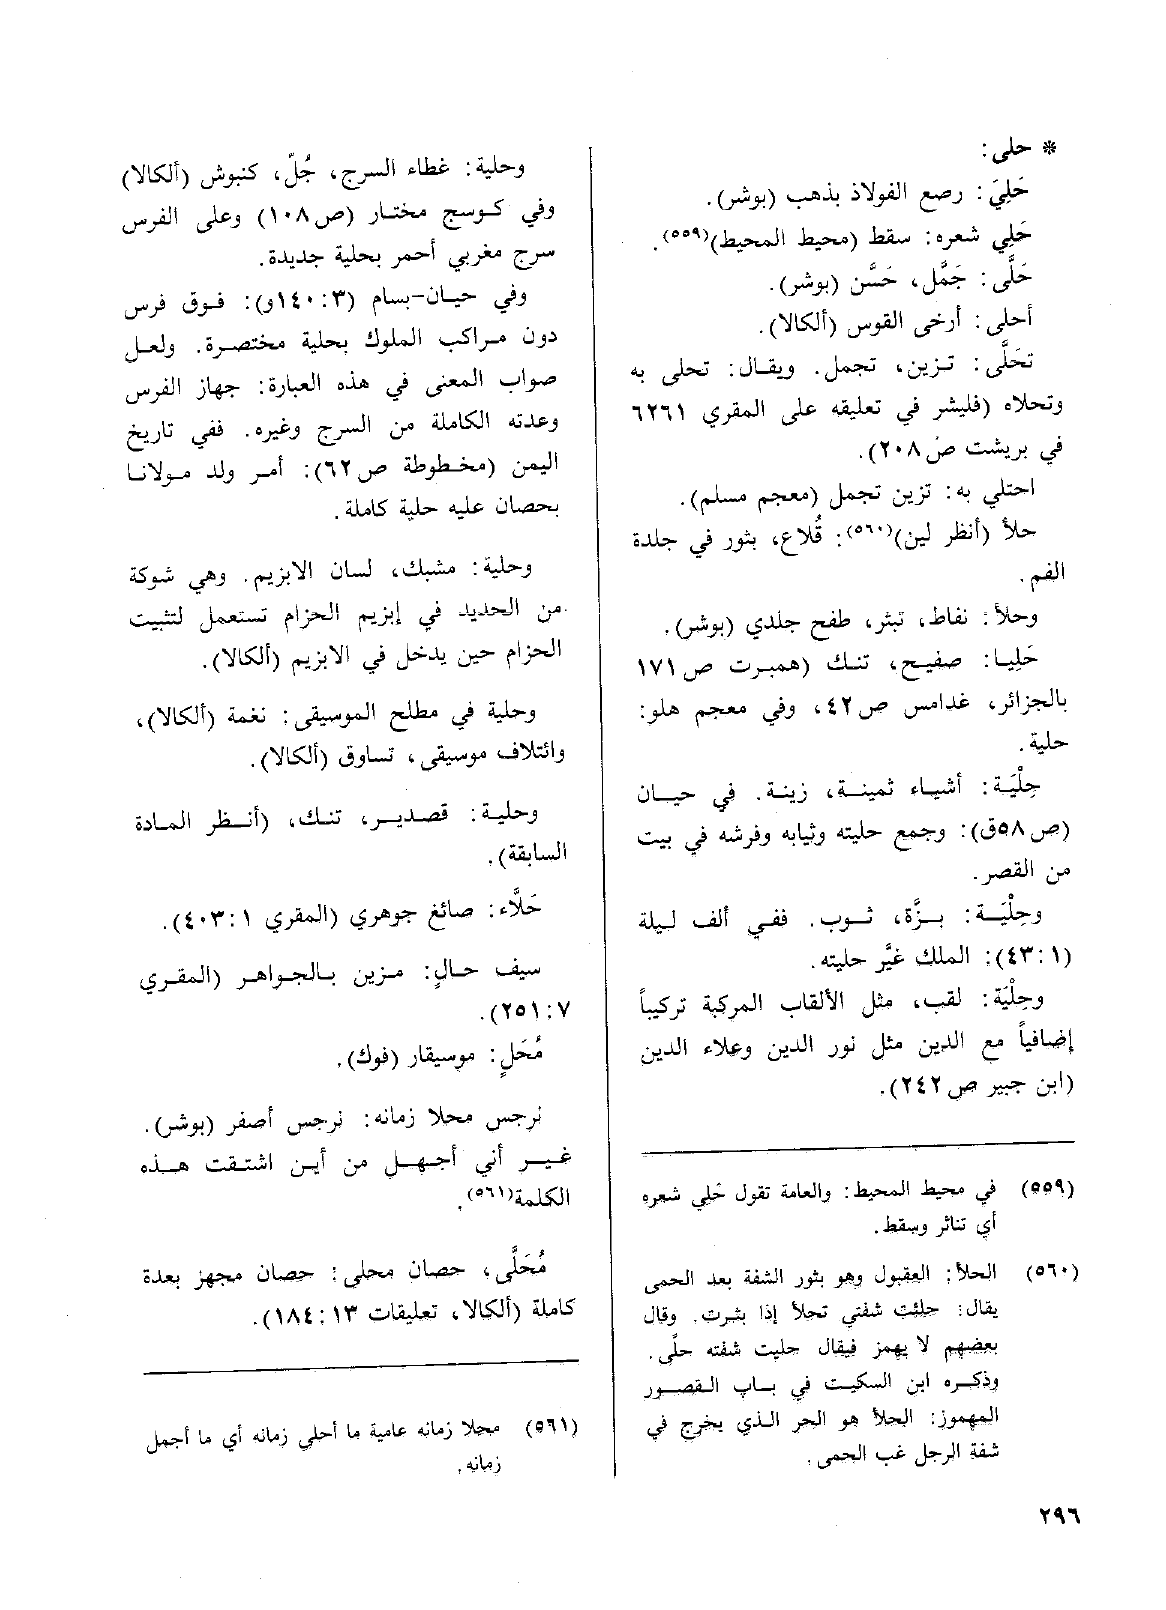 * حلى:
حَلِيَ: رصع الفولاذ بذهب (بوشر).
حَلِي شعره: سقط (محيط المحيط)(٥٥٩).
حَلَّى: جَمَّل، حَسَّن (بوشر).
أحلى: أرخى القوس (ألكالا).
تحَلَّى: تـزين، تجمل. ويقـال: تحلى به
وتحلاه (فليشر في تعليقه على المقري ٦٢٦١
في بريشت ص ٢٠٨).
احتلي به: تزين تجمل (معجم مسلم).
حلأ (أنظر لين)(٥٦٠): قُلاع، بثور في جلدة
الفم.
وحلأ: نفاط، تبثر، طفح جلدي (بوشر).
حَلِيـا: صفيح، تنك (همبرت ص ١٧١
بالجزائر، غدامس ص ٤٢، وفي معجم هلو:
حلية.
حِلْيَة: أشياء ثمينـة، زينـة. في حيـان
(ص ٥٨ق): وجمع حليته وثيابه وفرشه في بيت
من القصر.
وحِلْيَـة: بـزَّة، ثـوب. ففـي ألف ليـلة
(١ :٤٣): الملك غيَّر حليته.
وحِلْيَة: لقب، مثل الألقاب المركبة تركيباً
إضافياً مع الدين مثل نور الدين وعلاء الدين
(ابن جبير ص ٢٤٢).
(٥٥٩) في محيط المحيط: والعامة تقول حَلِي شعره
أي تناثر وسقط.
(٥٦٠) الحلأ: العقبول وهو بثور الشفة بعد الحمى
يقال: حلئت شفتي تحلأ إذا بثرت. وقال
بعضهم لا يهمز فيقال حليت شفته حلَّى.
وذكـره ابن السكيت في بـاب القصـور
المهموز: الحلأ هو الحر الـذي يخرج في
شفة الرجل غب الحمى.
وحلية: غطاء السرج، جُلّ، كنبوش (ألكالا)
وفي كـوسج مختـار (ص ١٠٨) وعلى الفرس
سرج مغربي أحمر بحلية جديدة.
وفي حيـان-بسام (٣ :١٤٠و): فـوق فرس
دون مـراكب الملوك بحلية مختصرة. ولعـل
صواب المعنى في هذه العبارة: جهاز الفرس
وعدته الكاملة من السرج وغيره. ففي تاريخ
اليمن (مخـطوطة ص ٦٢): أمـر ولد مـولانـا
بحصان عليه حلية كاملة.
وحلية: مشبك، لسان الابزيم. وهي شوكة
من الحديد في إبزيم الحزام تستعمل لتثبيت
الحزام حين يدخل في الابزيم (ألكالا).
وحلية في مطلح الموسيقى: نغمة (ألكالا)،
وائتلاف موسيقى، تساوق (ألكالا).
وحليـة: قصديـر، تنـك، (أنـظر المـادة
السابقة).
حَلَّاء: صائغ جوهري (المقري ١ :٤٠٣).
سيف حـالٍ: مـزين بـالجواهـر (المقـري
٧ :٢٥١).
مُحَلٍ: موسيقار (فوك).
نرجس محلا زمانه: نرجس أصفر (بوشر).
غيـر أني أجهـل من أيـن اشتقت هـذه
الكلمة(٥٦١).
مُحَلَّى، حصان محلى: حصان مجهز بعدة
كاملة (ألكالا، تعليقات ١٣ :١٨٤).
(٥٦١) محلا زمانه عامية ما أحلى زمانه أي ما أجمل
زمانه.
٢٩٦